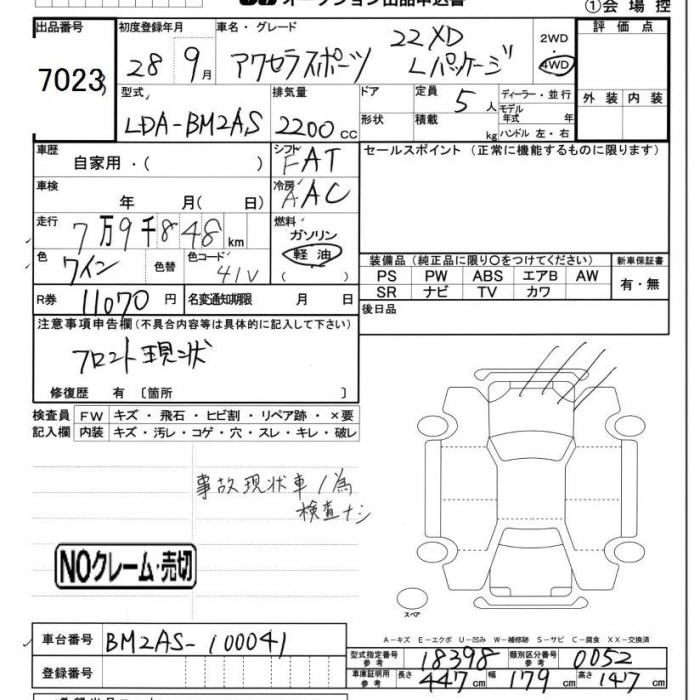 オークション出品申込書
①会場控
出品番号 初度登録年月 車名・グレード 評価点
7023 28 9月 アクセラスポーツ 22XD Lパッケージ 2WD 4WD
外装 内装
型式 排気量 ドア 定員 5人 ディーラー・並行
LDA-BM2AS 2200cc 形状 積載 kg モデル年式 年
ハンドル 左・右
車歴 自家用・( ) シフト FAT セールスポイント(正常に機能するものに限ります)
車検 年 月( 日) 冷房 AAC
走行 7万9千848km 燃料 ガソリン 軽油 ( )
色 ワイン 色替 色コード 41V
装備品(純正品に限り○をつけてください) 新車保証書
PS PW ABS エアB AW 有・無
SR ナビ TV カワ
R券 11070円 名変通知期限 月 日 後日品
注意事項申告欄(不具合内容等は具体的に記入して下さい)
フロント現状
修復歴 有 〔箇所 〕
検査員 FW キズ・飛石・ヒビ割・リペア跡・×要
記入欄 内装 キズ・汚レ・コゲ・穴・スレ・キレ・破レ
事故現状車ノ為
検査ナシ
NOクレーム・売切
スペア
A-キズ E-エクボ U-凹み W-補修跡 S-サビ C-腐食 XX-交換済
車台番号 BM2AS-100041
型式指定番号 参考 18398 類別区分番号 参考 0052
登録番号 車庫証明用 参考 長さ 447cm 幅 179cm 高さ 147cm